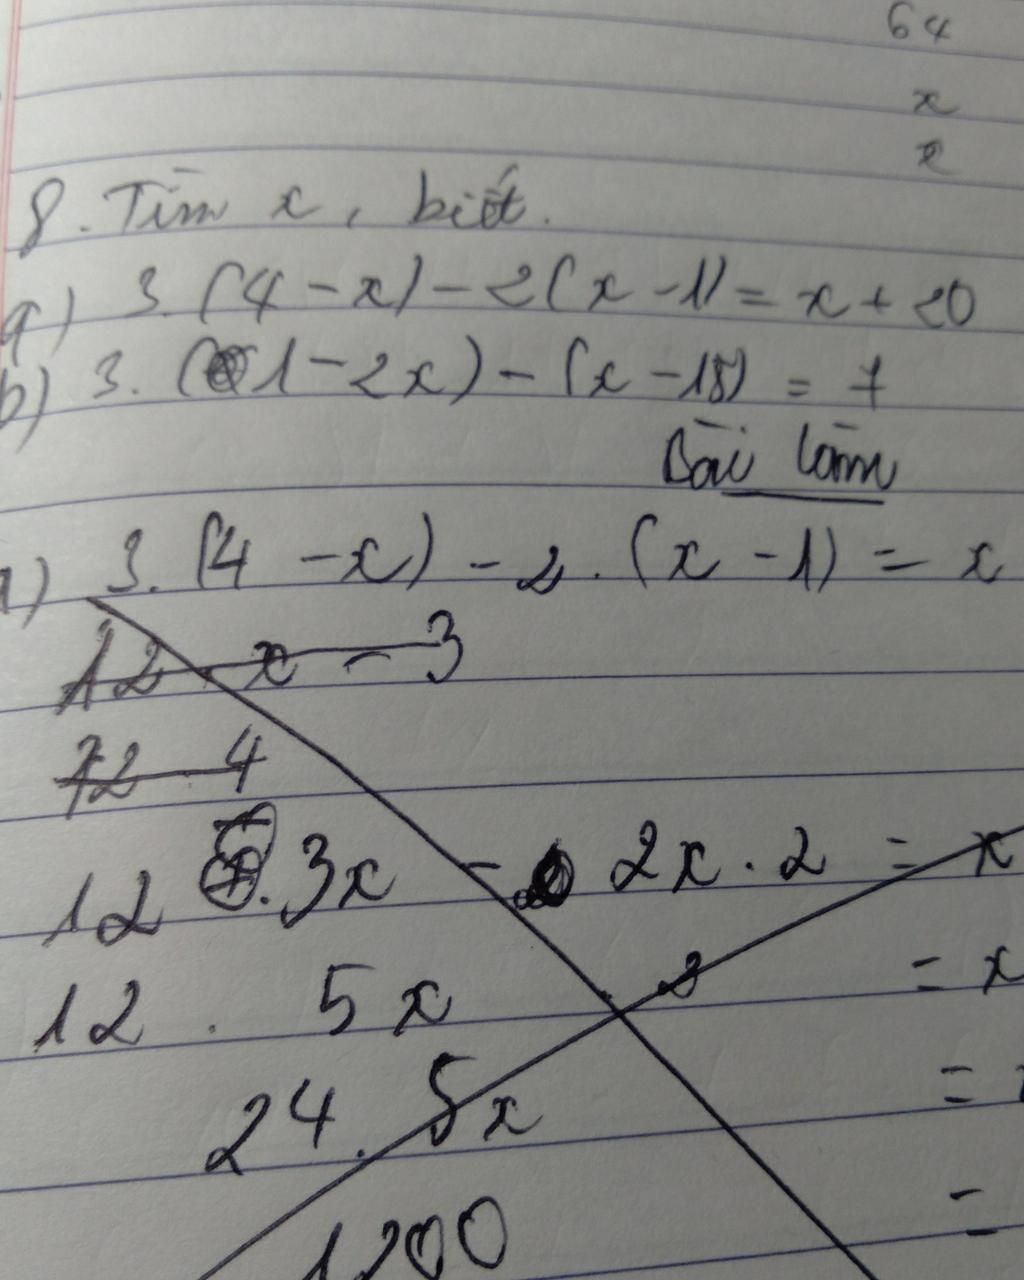 64
x
x
8. Tìm x, biết.
a) 3. (4 - x) - 2(x - 1) = x + 20
b) 3. (1 - 2x) - (x - 18) = 7
Bài làm
a) 3. (4 - x) - 2. (x - 1) = x
12 - x - 3
72 4
12 . 3x - 2x . 2 = x
12 . 5x = x
24 . 5x =
1200 =